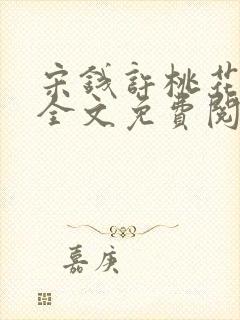 宋錢許桃花
全文免費閱
嘉庚